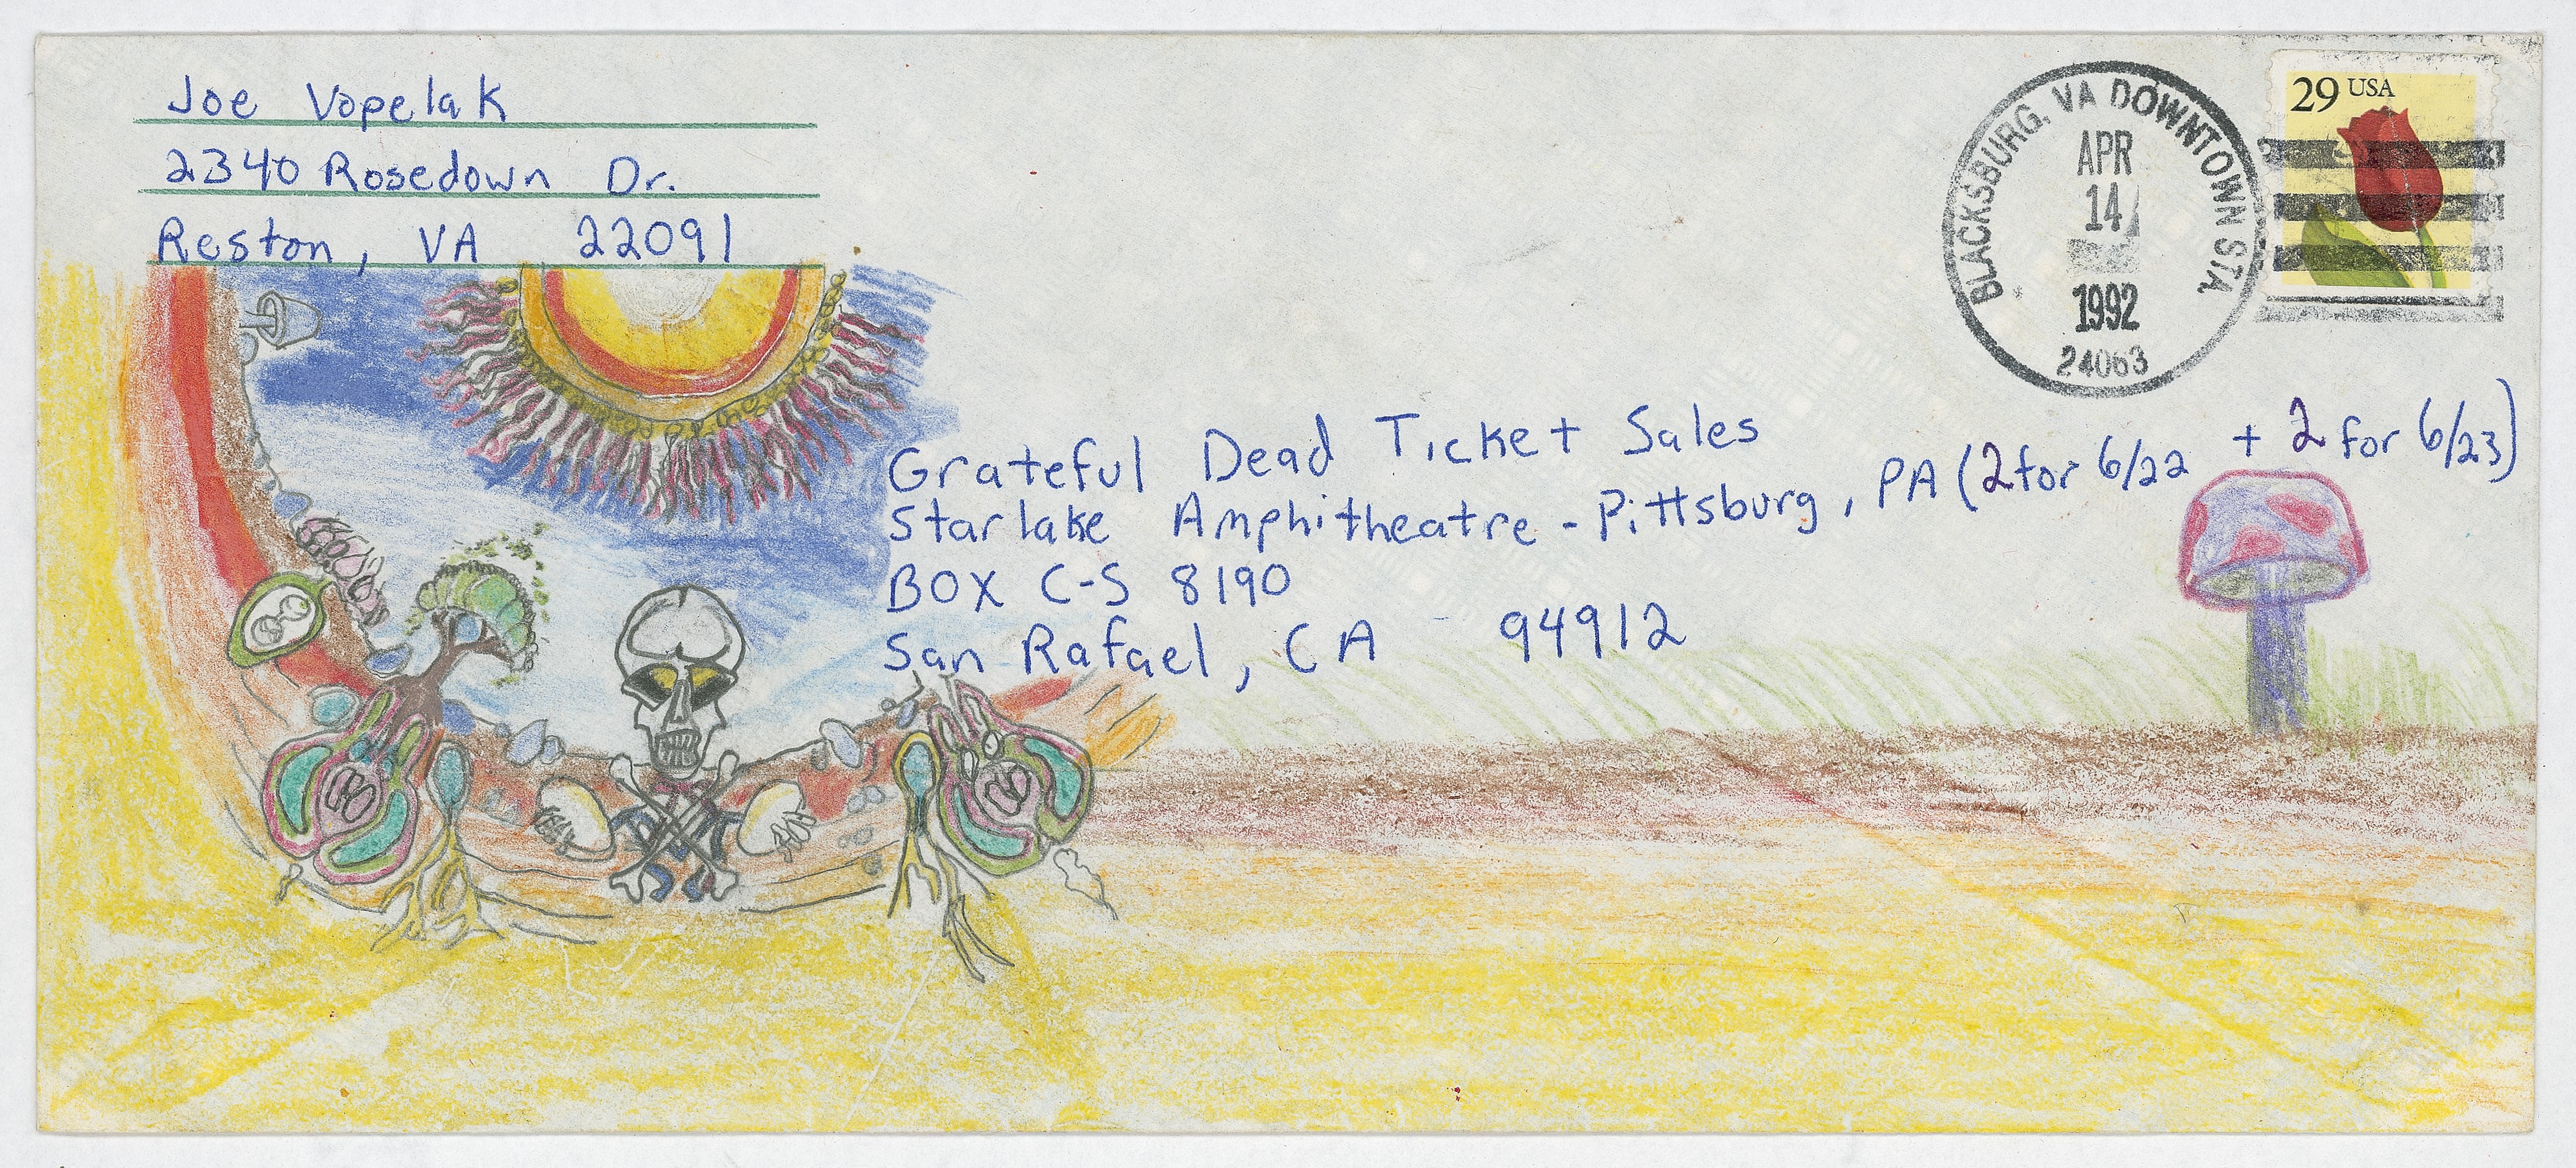 Joe Vopelak
2340 Rosedown Dr.
Reston, VA 22091
29 USA
BLACKSBURG, VA DOWNTOWN STA
APR
14
1992
24063
Grateful Dead Ticket Sales
Starlake Amphitheatre - Pittsburg, PA (2 for 6/22 + 2 for 6/23)
BOX C-S 8190
San Rafael, CA 94912